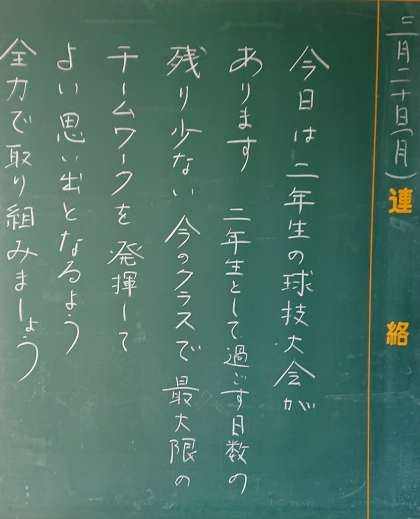 三月二十日(月)
連絡
今日は二年生の球技大会が
あります 二年生として過ごす日数の
残り少ない 今のクラスで 最大限の
チームワークを 発揮して
よい思い出となるよう
全力で取り組みましょう